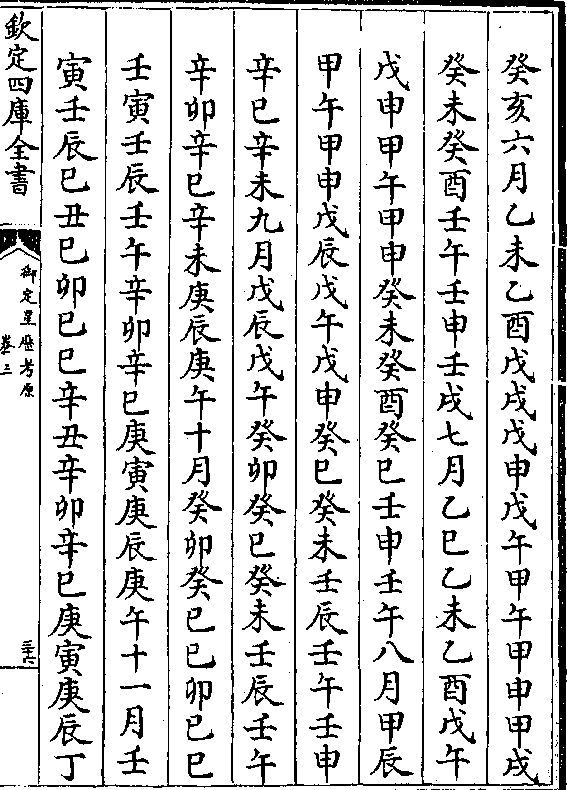 癸亥六月乙未乙酉戊戌戊申戊午甲午甲申甲戌
癸未癸酉壬午壬申壬戌七月乙巳乙未乙酉戊午
戊申甲午甲申癸未癸酉癸巳壬申壬午八月甲辰
甲午甲申戊辰戊午戊申癸巳癸未壬辰壬午壬申
辛巳辛未九月戊辰戊午癸卯癸巳癸未壬辰壬午
辛卯辛巳辛未庚辰庚午十月癸卯癸巳己卯己巳
壬寅壬辰壬午辛卯辛巳庚寅庚辰庚午十一月壬
寅壬辰巳丑巳卯巳巳辛丑辛卯辛巳庚寅庚辰丁
欽定四庫全書
御定星歴考原
卷三
三十六